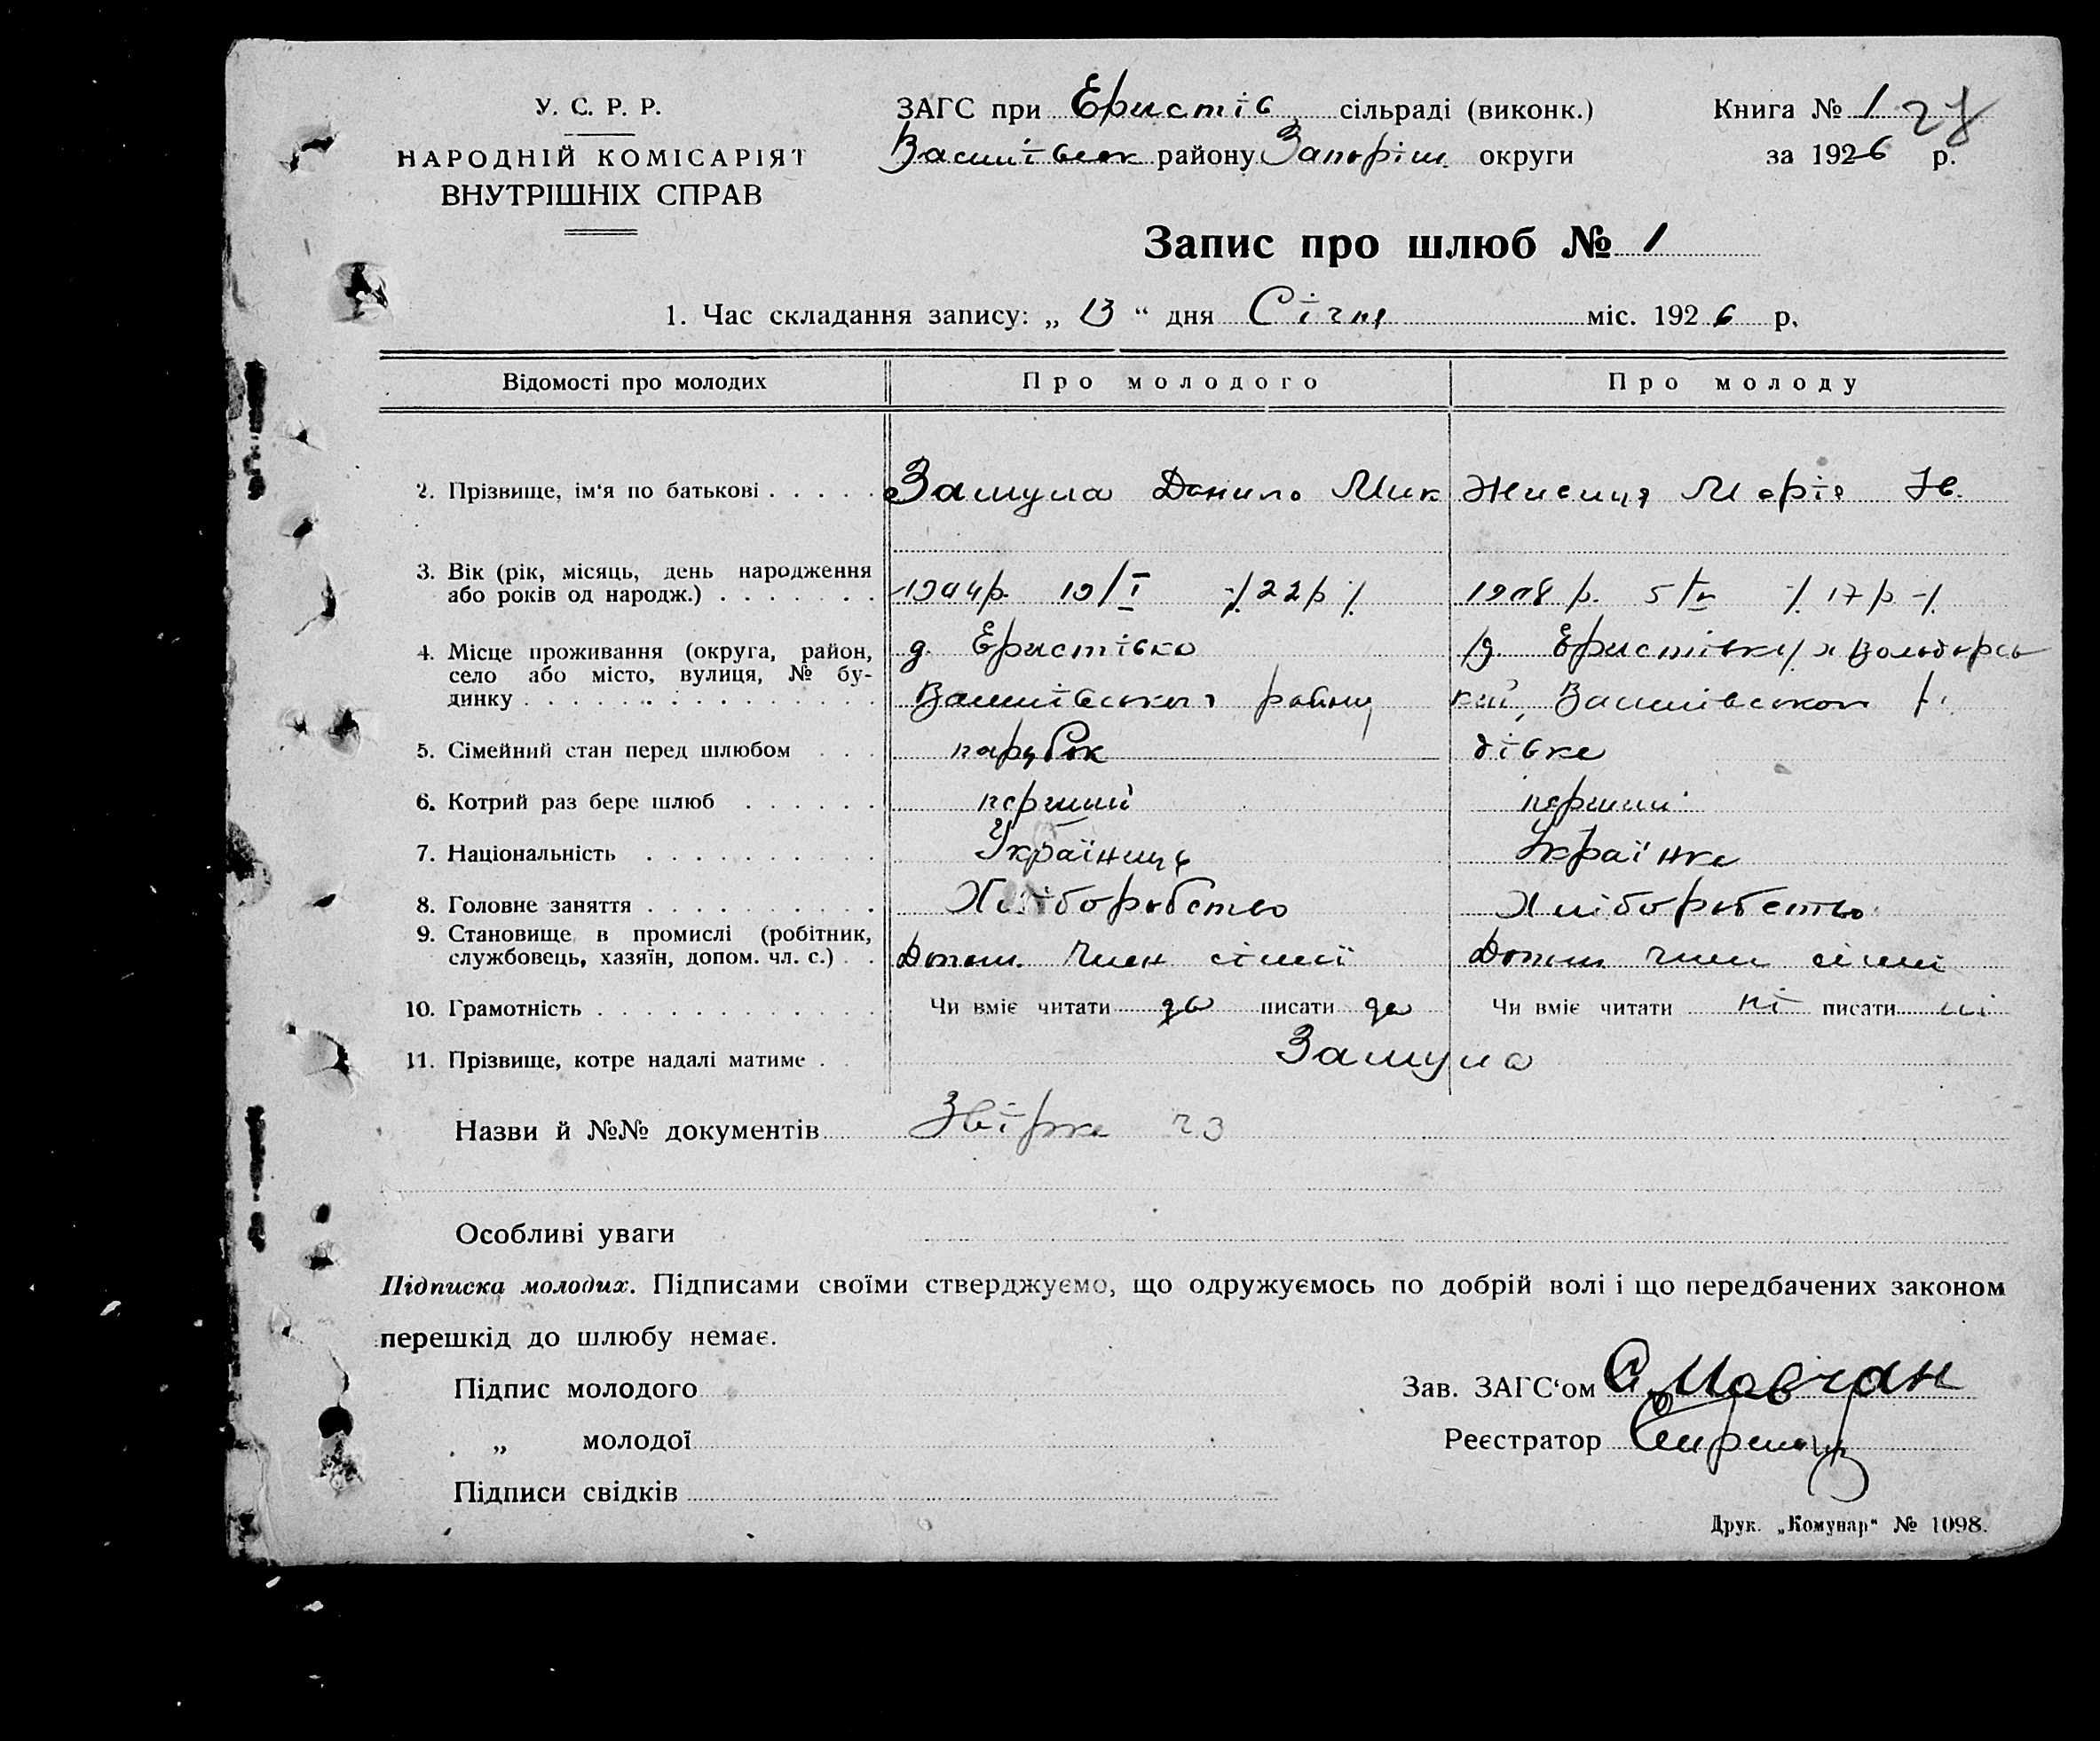 У. С. Р. Р.
НАРОДНІЙ КОМІСАРІЯТ
ВНУТРІШНІХ СПРАВ
ЗАГС при Еристів сільраді (виконк.)
Василівськ району Запоріж. округи
Книга № 1 27
за 1926 р.
Запис про шлюб № 1
1. Час складання запису: „ 13 “ дня Січня міс. 1926 р.
Відомості про молодих Про молодого Про молоду
2. Прізвище, ім'я по батькові . . . . . Замула Данило Мик Жисиця Марія Ів.
3. Вік (рік, місяць, день народження
або років од народж.) . . . . . . . 1904р. 19/I ·/. 22р ·/. 1908 р. 5/ ·/. 17 р ·/.
4. Місце проживання (округа, район,
село або місто, вулиця, № бу-
динку . . . . . . . . . . . . . . .
д. Еристівка
Василівського району
д. Еристівка
кий, Василівського р.
5. Сімейний стан перед шлюбом . . . парубок дівка
6. Котрий раз бере шлюб . . . . . . перший перший
7. Національність . . . . . . . . . . Українець Українка
8. Головне заняття . . . . . . . . . . Хліборобство Хліборобство
9. Становище в промислі (робітник,
службовець, хазяїн, допом. чл. с.) . . Допом. член сімї Допом член сімї
10. Грамотність . . . . . . . . . . . . Чи вміє читати да писати да Чи вміє читати ні писати ні
11. Прізвище, котре надалі матиме . . Замула
Назви й №№ документів Звірка
Особливі уваги
Підписка молодих. Підписами своїми стверджуємо, що одружуємось по добрій волі і що передбачених законом
перешкід до шлюбу немає.
Підпис молодого
„ молодої
Підписи свідків
Зав. ЗАГС'ом Мовчан
Реєстратор
Друк. „Комунар“ № 1098.